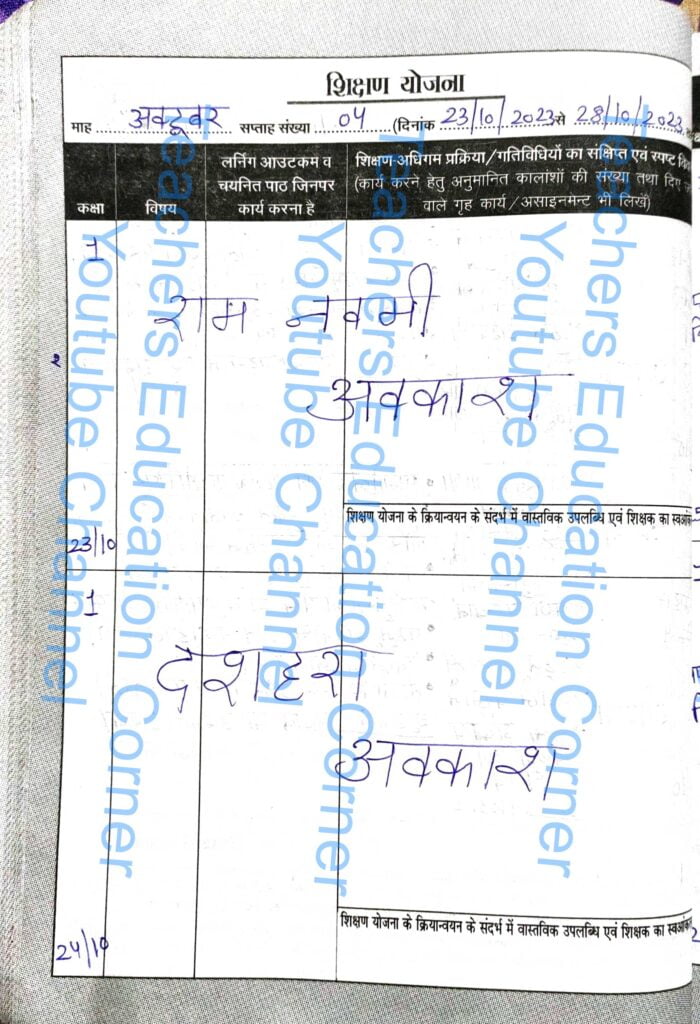 शिक्षण योजना
माह अक्टूबर सप्ताह संख्या 04 (दिनांक 23/10/2023 से 28/10/2023
कक्षा विषय लर्निंग आउटकम व चयनित पाठ जिनपर कार्य करना है शिक्षण-अधिगम प्रक्रिया/गतिविधियों का संक्षिप्त एवं स्पष्ट
(कार्य करने हेतु अनुमानित कालांशों की संख्या तथा दिए
वाले गृह कार्य/असाइनमेन्ट भी लिखें)
1
राम नवमी
अवकाश
शिक्षण योजना के क्रियान्वयन के संदर्भ में वास्तविक उपलब्धि एवं शिक्षक का
23/10
1
देशहरा
अवकाश
शिक्षण योजना के क्रियान्वयन के संदर्भ में वास्तविक उपलब्धि एवं शिक्षक का
24/10
Teachers Education Corner
Youtube Channel
Teachers Education Corner
Youtube Channel
Teachers Education Corner
Youtube Channel